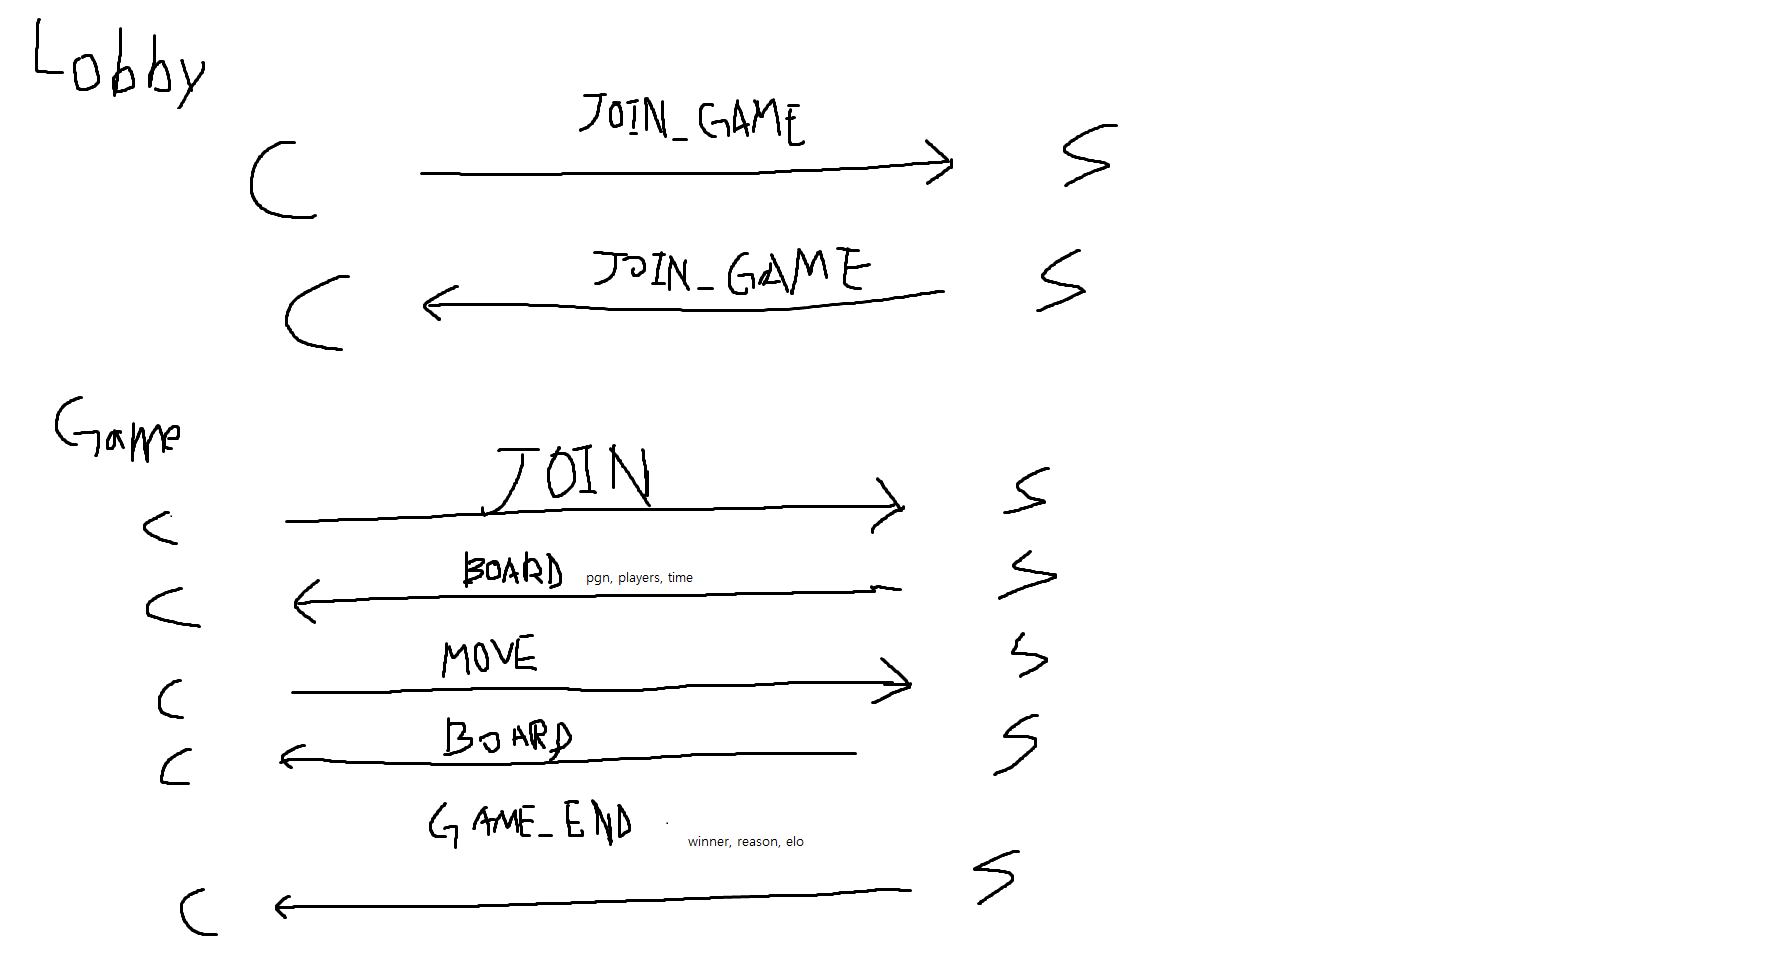 Lobby
JOIN_GAME
C S
JOIN_GAME
C S
Game
JOIN
C S
BOARD pgn, players, time
C S
MOVE
C S
BOARD
C S
GAME_END winner, reason, elo
C S